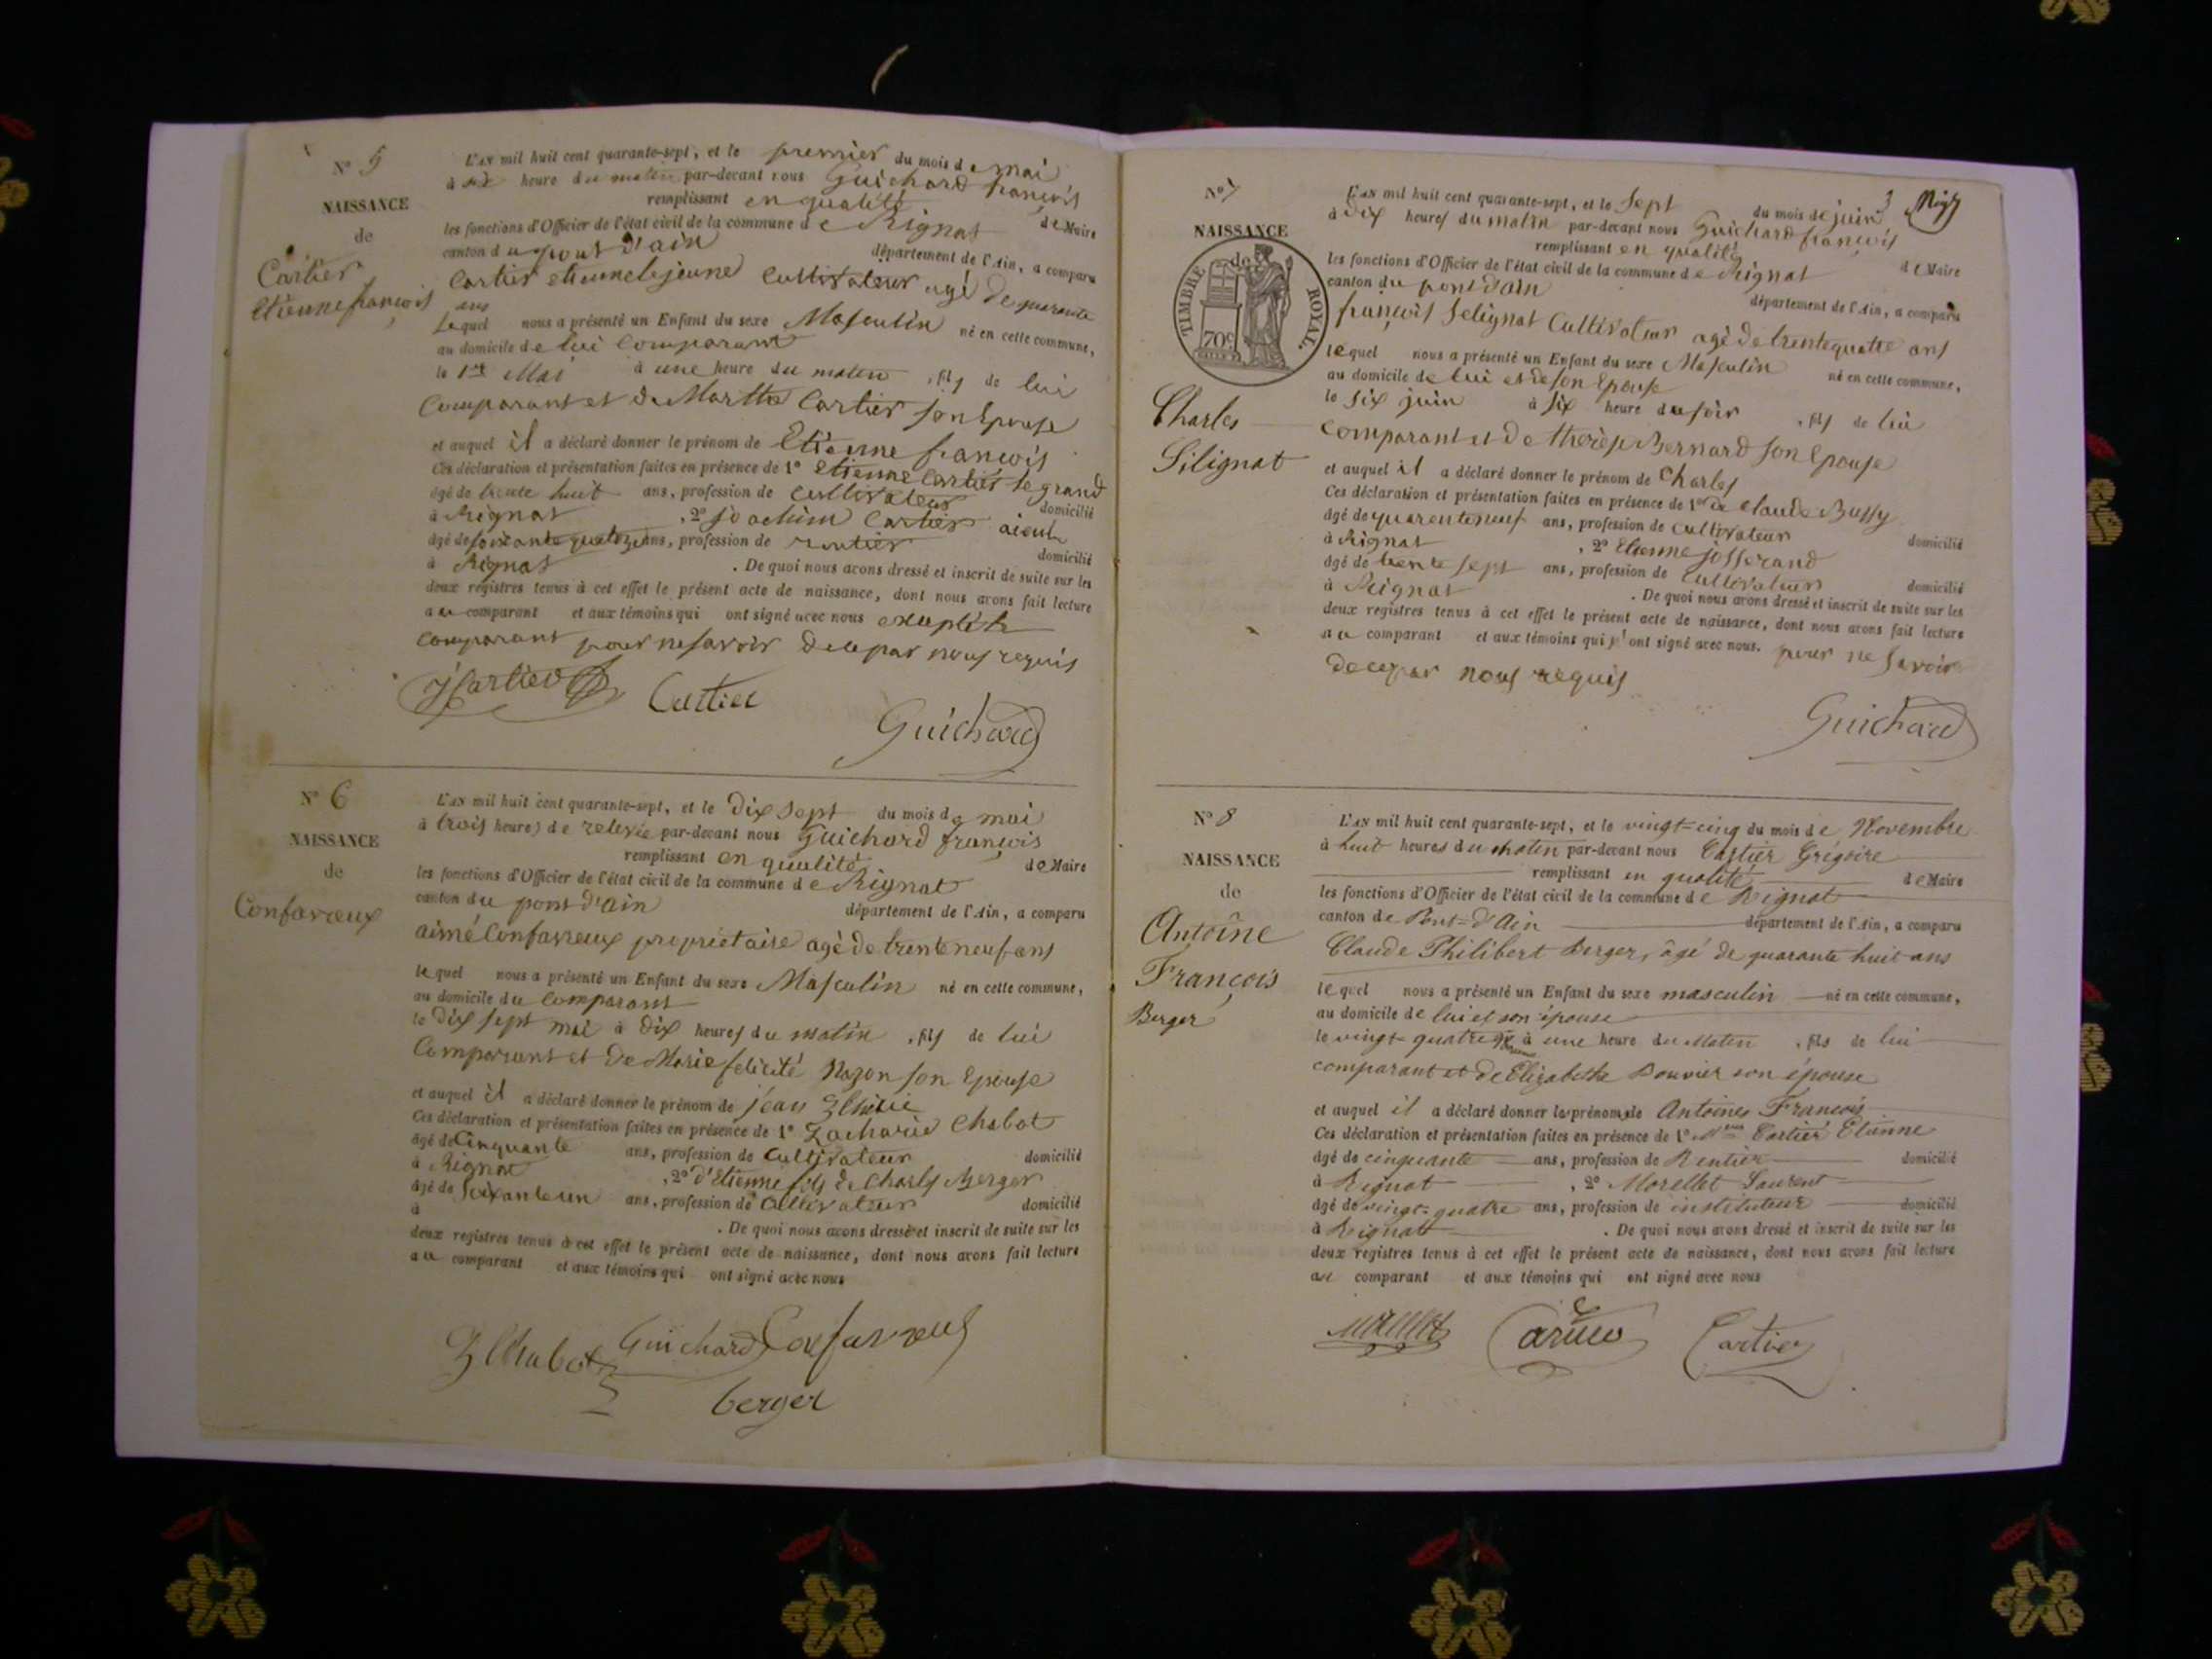 N° 5
NAISSANCE
de
Cartier
Etienne françois
L'AN mil huit cent quarante-sept, et le premier du mois de mai
à six heure du matin par-devant nous Guichard françois
remplissant en qualité de Maire
les fonctions d'Officier de l'état civil de la commune de Rignat
canton du pont d'ain département de l'Ain, a comparu
Cartier etienne le jeune Cultivateur agé de quarante
ans
Lequel nous a présenté un Enfant du sexe Masculin né en cette commune,
au domicile de lui Comparant
le 1er Mai à une heure du matin , fils de lui
Comparant et de Marthe Cartier son Epouse
et auquel il a déclaré donner le prénom de Etienne françois
Ces déclaration et présentation faites en présence de 1° etienne Cartier le grand
âgé de trente huit ans, profession de cultivateur domicilié
à Rignat , 2° joachim Cartier aieul
âgé de soixante quatorze ans, profession de rentier domicilié
à Rignat . De quoi nous avons dressé et inscrit de suite sur les
deux registres tenus à cet effet le présent acte de naissance, dont nous avons fait lecture
au comparant et aux témoins qui ont signé avec nous exepté le
comparant pour ne savoir de ce par nous requis
JCartier Cartier
Guichard
N° 6
NAISSANCE
de
Confavreux
L'AN mil huit cent quarante-sept, et le Dix sept du mois de mai
à trois heures de relevée par-devant nous Guichard françois
remplissant en qualité de Maire
les fonctions d'Officier de l'état civil de la commune de Rignat
canton du pont d'ain département de l'Ain, a comparu
aimé Confavreux propriétaire agé de trente neuf ans
lequel nous a présenté un Enfant du sexe Masculin né en cette commune,
au domicile du Comparant
le Dix sept mai à Dix heures du matin , fils de lui
Comparant et de Marie felicité Mazon son Epouse
et auquel il a déclaré donner le prénom de jean
Ces déclaration et présentation faites en présence de 1° Zacharie Chabot
âgé de Cinquante ans, profession de Cultivateur domicilié
à Rignat , 2° d'Etienne fils de Charles Berger
âgé de Soixante un ans, profession de Cultivateur domicilié
à . De quoi nous avons dressé et inscrit de suite sur les
deux registres tenus à cet effet le présent acte de naissance, dont nous avons fait lecture
au comparant et aux témoins qui ont signé avec nous
ZChabot Guichard Confavreux
berger
3
N° 7
NAISSANCE
de
TIMBRE ROYAL.
70c
Charles
Silignat
L'AN mil huit cent quarante-sept, et le Sept du mois de juin
à Dix heures du matin par-devant nous Guichard françois
remplissant en qualité de Maire
les fonctions d'Officier de l'état civil de la commune de Rignat
canton du pont d'ain département de l'Ain, a comparu
françois Selignat Cultivateur agé de trente quatre ans
lequel nous a présenté un Enfant du sexe Masculin né en cette commune,
au domicile de lui et de son Epouse
le Six juin à Six heure du soir , fils de lui
Comparant et de therèse Bernard son Epouse
et auquel il a déclaré donner le prénom de Charles
Ces déclaration et présentation faites en présence de 1° de Claude Bussy
âgé de quarente neuf ans, profession de Cultivateur domicilié
à Rignat , 2° Etienne josserand
âgé de trente sept ans, profession de Cultivateur domicilié
à Rignat . De quoi nous avons dressé et inscrit de suite sur les
deux registres tenus à cet effet le présent acte de naissance, dont nous avons fait lecture
au comparant et aux témoins qui n'ont signé avec nous. pour ne savoir
de ce par nous requis
Guichard
N° 8
NAISSANCE
de
Antoîne
François
Berger
L'AN mil huit cent quarante-sept, et le vingt=cinq du mois de Novembre
à huit heures du matin par-devant nous Cartier Grégoire
remplissant en qualité de Maire
les fonctions d'Officier de l'état civil de la commune de Rignat
canton de Pont=d'Ain département de l'Ain, a comparu
Claude Philibert Berger, âgé de quarante huit ans
lequel nous a présenté un Enfant du sexe masculin né en cette commune,
au domicile de lui et son épouse
le vingt quatre à une heure du Matin , fils de lui
comparant et de Elizabethe Bouvier son épouse
et auquel il a déclaré donner les prénoms de Antoines François
Ces déclaration et présentation faites en présence de 1° Cartier Etienne
âgé de cinquante ans, profession de Rentier domicilié
à Rignat , 2° Morellet Laurent
âgé de vingt=quatre ans, profession de instituteur domicilié
à Rignat . De quoi nous avons dressé et inscrit de suite sur les
deux registres tenus à cet effet le présent acte de naissance, dont nous avons fait lecture
au comparant et aux témoins qui ont signé avec nous
Cartier